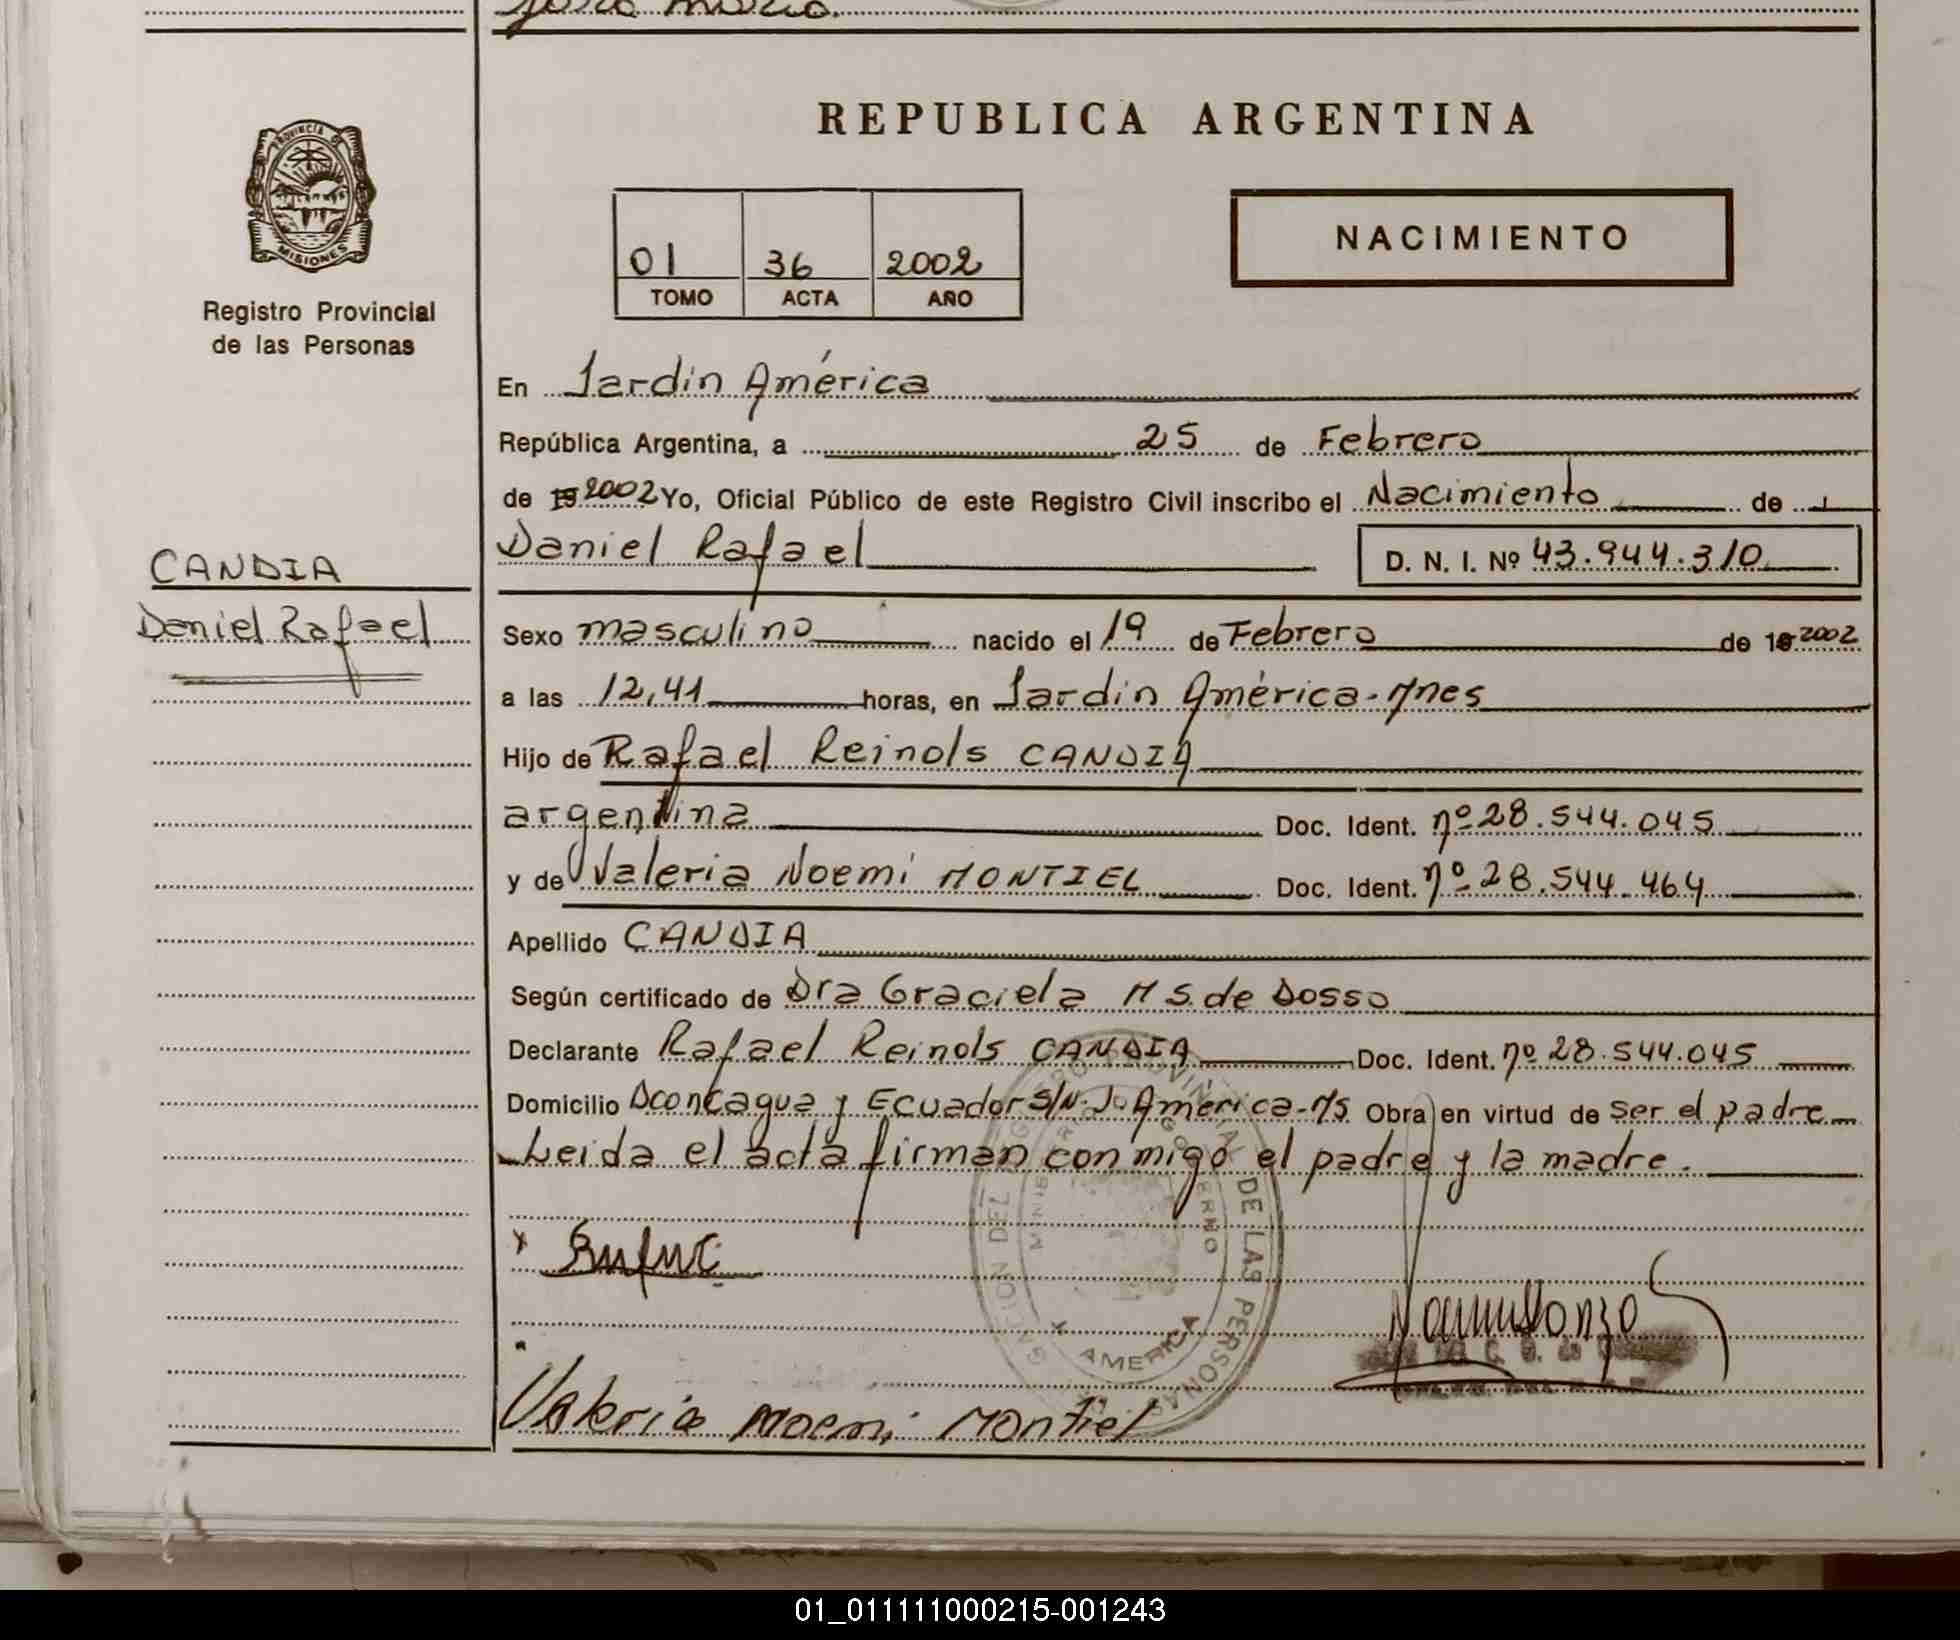 José María.
REPUBLICA ARGENTINA
PROVINCIA DE
MISIONES
Registro Provincial
de las Personas
01 36 2002
TOMO ACTA AÑO
NACIMIENTO
En Jardín América
República Argentina, a 25 de Febrero
de 19 2002 Yo, Oficial Público de este Registro Civil inscribo el Nacimiento de
CANDIA
Daniel Rafael
Daniel Rafael D. N. I. Nº 43.944.310
Sexo masculino nacido el 19 de Febrero de 19 2002
a las 12,41 horas, en Jardín América - Mnes
Hijo de Rafael Reinols CANDIA
argentina Doc. Ident. nº 28.544.045
y de Valeria Noemí MONTIEL Doc. Ident. nº 28.544.464
Apellido CANDIA
Según certificado de Dra Graciela M S. de Dosso
Declarante Rafael Reinols CANDIA Doc. Ident. nº 28.544.045
Domicilio Aconcagua y Ecuador S/N. J. América - Ms Obra en virtud de ser el padre
Leida el acta firman conmigo el padre y la madre.
DE LAS PERSONAS
AMERICA
Valeria Noemi Montiel
01_011111000215-001243